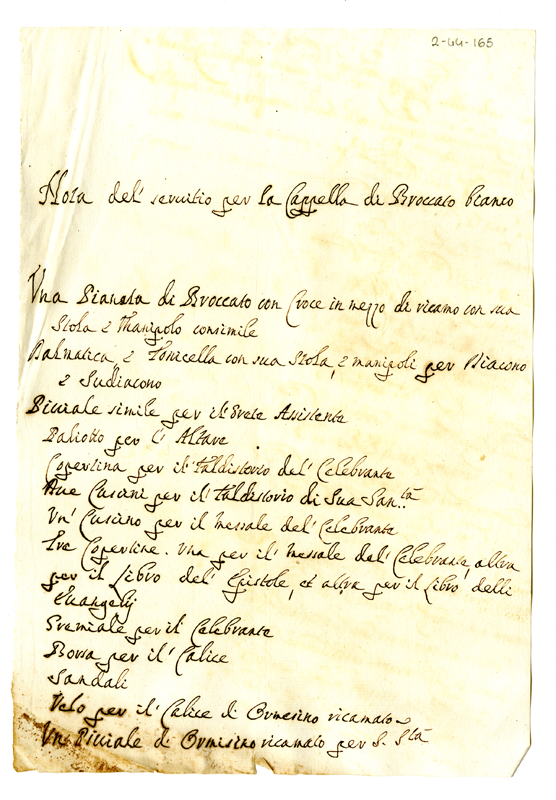 2-44-165
Nota del' seruitio per la Cappella di Broccato bianco
Vna Pianeta di Broccato con Croce in mezzo di ricamo con sua
Stola e Manipolo consimile
Dalmatica e Tonicella con sua Stola, e manipoli per Diacono
e Sudiacono
Piuiale simile per il Prete Assistente
Paliotto per l' Altare
Copertina per il faldistorio del' Celebrante
Due Cuscini per il faldistorio di Sua San.tà
Vn' Cuscino per il Messale del' Celebrante
Tre Copertine. Vna per il' Messale del' Celebrante, altra
per il Libro del' Epistole, et altra per il Libro delli
Euangelij
Gremiale per il' Celebrante
Borsa per il' Calice
Sandali
Velo per il' Calice di Ormesino ricamato
Vn' Piuiale di Ormisino ricamato per S. Stà